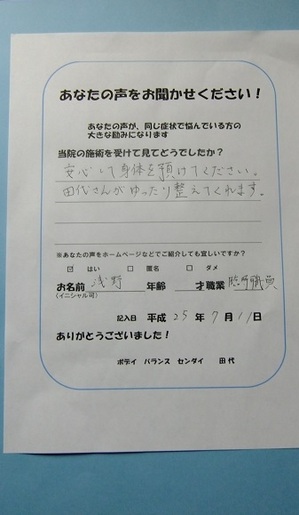 あなたの声をお聞かせください！
あなたの声が、同じ症状で悩んでいる方の
大きな励みになります
当院の施術を受けて見てどうでしたか？
安心して身体を預けてください。
田代さんがゆったり整えてくれます。
※あなたの声をホームページなどでご紹介しても宜しいですか？
☑ はい □ 匿名 □ ダメ
お名前 浅野 年齢 才職業 臨時職員
（イニシャル可）
記入日 平成 25 年 7 月 11 日
ありがとうございました！
ボディ バランス センダイ 田代